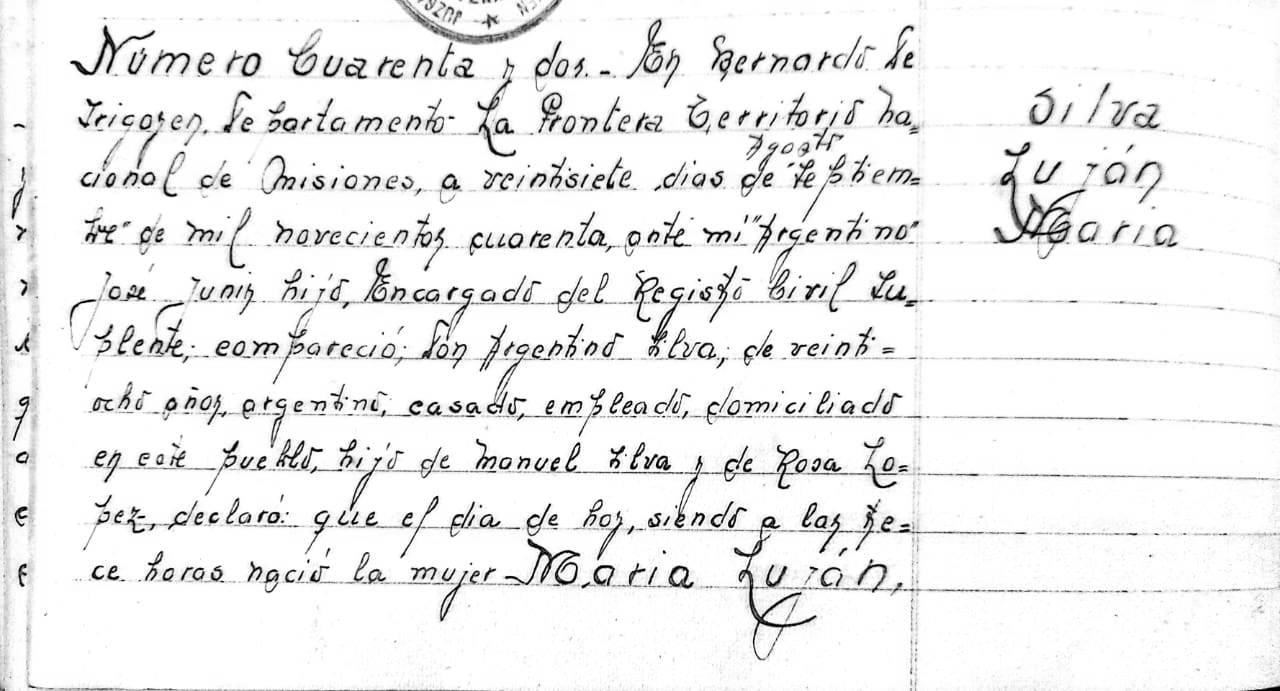 Número Cuarenta y dos.- En Bernardo de
Irigoyen, Departamento La Frontera Territorio Na=
Agosto
cional de Misiones, a veintisiete dias de "Septiem=
bre" de mil novecientos cuarenta, ante mi "Argentino"
José Junin hijo, Encargado del Registro Civil Su=
plente; compareció; Don Argentino Silva; de veinti=
ocho años, argentino, casado, empleado, domiciliado
en este pueblo, hijo de Manuel Silva y de Rosa Lo=
pez, declaró: que el dia de hoy, siendo a las
ce horas nació la mujer Maria Luján,
Silva
Luján
Maria